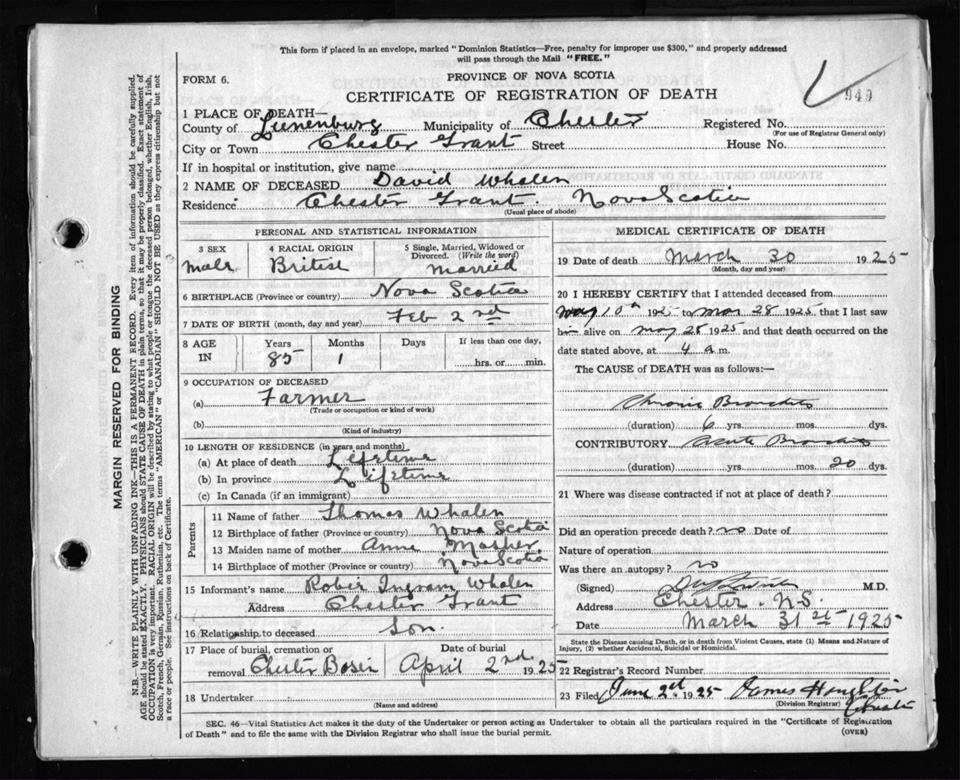 This form if placed in an envelope, marked "Dominion Statistics—Free, penalty for improper use $300," and properly addressed
will pass through the Mail "FREE."
FORM 6.
PROVINCE OF NOVA SCOTIA
CERTIFICATE OF REGISTRATION OF DEATH
949
1 PLACE OF DEATH—
County of Lunenburg Municipality of Chester Registered No.
(For use of Registrar General only)
City or Town Chester Grant Street House No.
If in hospital or institution, give name
2 NAME OF DECEASED David Whalen
Residence Chester Grant. Nova Scotia
(Usual place of abode)
PERSONAL AND STATISTICAL INFORMATION
3 SEX
male
4 RACIAL ORIGIN
British
5 Single, Married, Widowed or
Divorced. (Write the word)
married
6 BIRTHPLACE (Province or country) Nova Scotia
7 DATE OF BIRTH (month, day and year) Feb 2nd
8 AGE
IN
Years Months Days If less than one day,
85 1 hrs. or min.
9 OCCUPATION OF DECEASED
(a) Farmer
(Trade or occupation or kind of work)
(b)
(Kind of industry)
10 LENGTH OF RESIDENCE (in years and months)
(a) At place of death Lifetime
(b) In province Lifetime
(c) In Canada (if an immigrant)
Parents
11 Name of father Thomas Whalen
12 Birthplace of father (Province or country) Nova Scotia
13 Maiden name of mother Anne
14 Birthplace of mother (Province or country) Nova Scotia
15 Informant's name Robie Ingram Whalen
Address Chester Grant
16 Relationship to deceased Son
17 Place of burial, cremation or Date of burial
removal Chester Basin April 2nd 1925
18 Undertaker
(Name and address)
MEDICAL CERTIFICATE OF DEATH
19 Date of death March 30 1925
(Month, day and year)
20 I HEREBY CERTIFY that I attended deceased from
10th 1925 to Mar 28 1925 that I last saw
him alive on 28 1925 and that death occurred on the
date stated above, at 4 a m.
The CAUSE of DEATH was as follows:—
Chronic Bronchitis
(duration) 6 yrs. mos. dys.
CONTRIBUTORY Acute Bronchitis
(duration) yrs. mos. 20 dys.
21 Where was disease contracted if not at place of death?
Did an operation precede death? no Date of
Nature of operation
Was there an autopsy? no
(Signed) M.D.
Address Chester. N.S.
Date March 31st 1925
State the Disease causing Death, or in death from Violent Causes, state (1) Means and Nature of
Injury, (2) whether Accidental, Suicidal or Homicidal.
22 Registrar's Record Number
23 Filed June 2d 1925 James
(Division Registrar) Chester
SEC. 46—Vital Statistics Act makes it the duty of the Undertaker or person acting as Undertaker to obtain all the particulars required in the "Certificate of Registration
of Death" and to file the same with the Division Registrar who shall issue the burial permit.
(OVER)
MARGIN RESERVED FOR BINDING
N.B.—WRITE PLAINLY WITH UNFADING INK—THIS IS A PERMANENT RECORD. Every item of information should be carefully supplied.
AGE should be stated EXACTLY. PHYSICIANS should STATE CAUSE OF DEATH in plain terms, so that it may be properly classified. Exact statement of
OCCUPATION is very important. RACIAL ORIGIN will be described by stating to what people or tongue the deceased person belonged, whether English, Irish,
Scotch, French, German, Russian, Ruthenian, etc. The terms "AMERICAN" or "CANADIAN" SHOULD NOT BE USED as they express citizenship but not
a race or people. See instructions on back of Certificate.